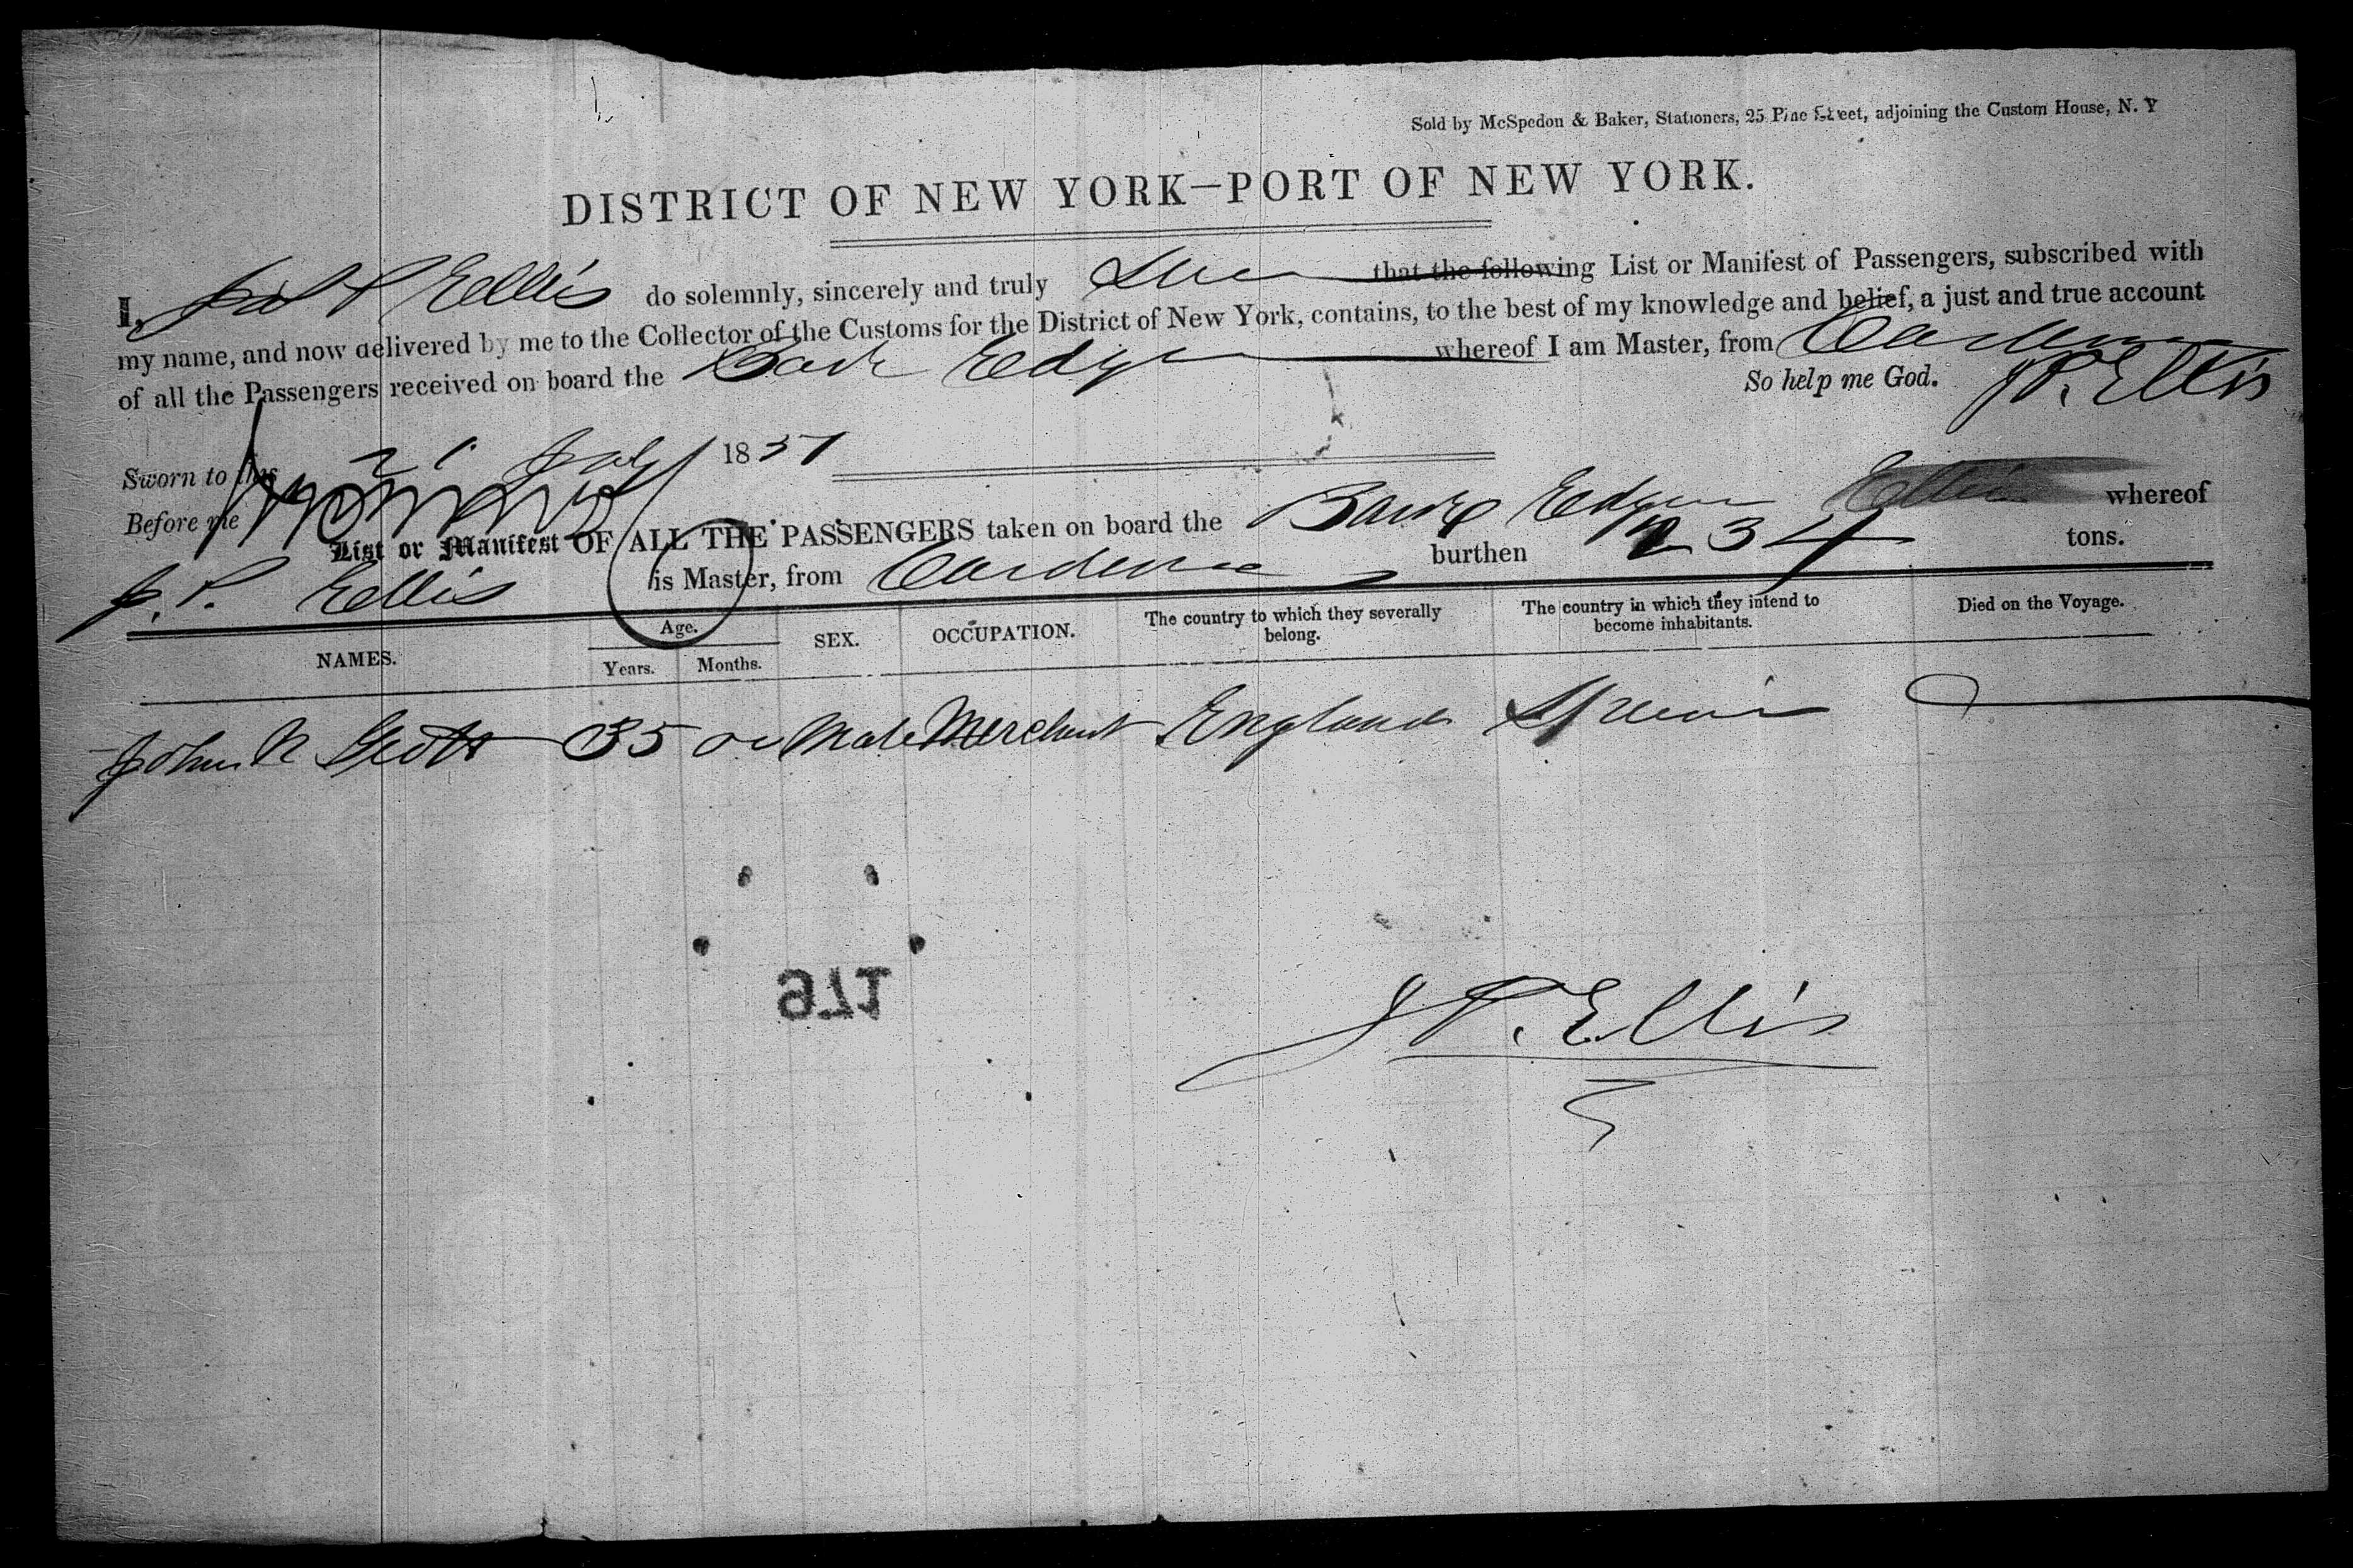 Sold by McSpedon & Baker, Stationers, 25 Pine Street, adjoining the Custom House, N. Y
DISTRICT OF NEW YORK—PORT OF NEW YORK.
I, P Ellis do solemnly, sincerely and truly that the following List or Manifest of Passengers, subscribed with
my name, and now delivered by me to the Collector of the Customs for the District of New York, contains, to the best of my knowledge and belief, a just and true account
of all the Passengers received on board the Bark whereof I am Master, from Cardenas
So help me God. J P. Ellis
Sworn to this 21 July 1851
Before me
List or Manifest OF ALL THE PASSENGERS taken on board the Barque Edgar whereof
J. P. Ellis is Master, from Cardenas burthen 234 tons.
NAMES. Age. Years. Months. SEX. OCCUPATION. The country to which they severally belong. The country in which they intend to become inhabitants. Died on the Voyage.
John Scott 35 Male Merchant England
971
J P. Ellis